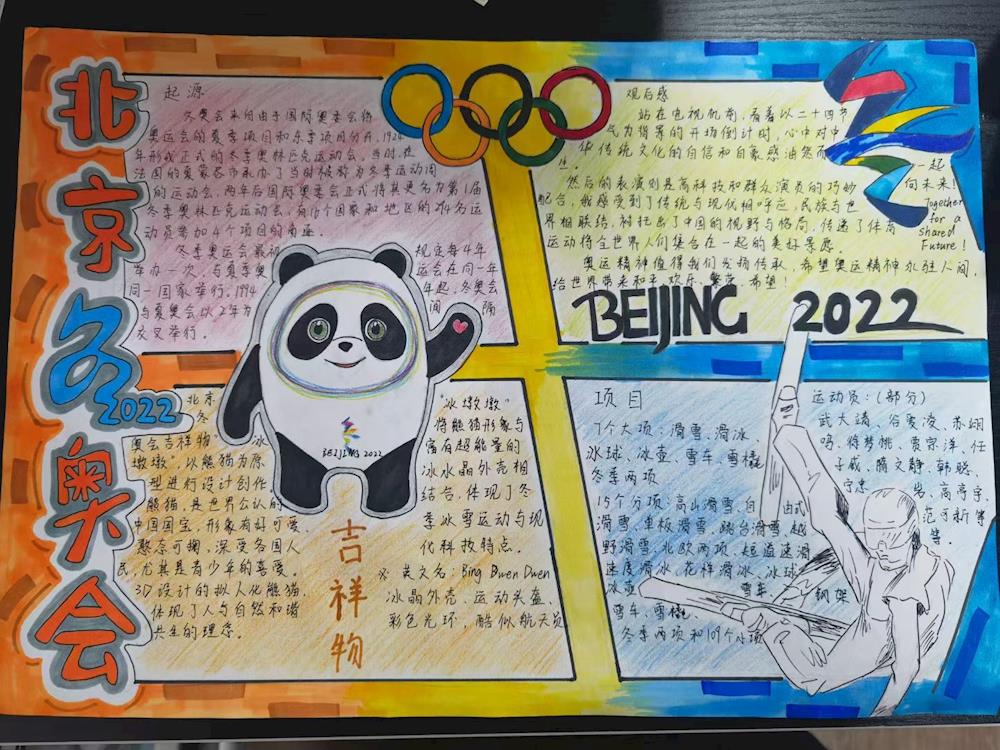 北京冬奥会
2022
起源
冬奥会来自由于国际奥委会将
奥运会的夏季项目和冬季项目分开,1924
年形成正式的冬季奥林匹克运动会,当时,在
法国的夏蒙尼市承办了当时被称为冬季运动周
的运动会,两年后国际奥委会正式将其更名为第1届
冬季奥林匹克运动会,有16个国家和地区的
动员参加4个项目的角逐。
冬季奥运会最初 规定每4年
举办一次,与夏季奥 运会在同一年
同一国家举行。1994 年起,冬奥会
与夏奥会以2年为 间隔
交叉举行。
观后感
站在电视机前,看着以二十四节
气为背景的开场倒计时,心中对中
华传统文化的自信和自豪感油然而
生。
然后的表演则是高科技和群众演员的巧妙
配合,我感受到了传统与现代相呼应,民族与世
界相联结,衬托出了中国的视野与格局,传递了体育
运动将全世界人们集合在一起的美好景愿
奥运精神值得我们发扬传承,希望奥运精神永驻人间,
给世界带来和平、欢乐、繁荣、希望!
一起
向未来!
Together
for a
shared
Future!
BEIJING 2022
北京
冬
奥会吉祥物"冰
墩墩",以熊猫为原
型进行设计创作
熊猫,是世界公认的
中国国宝,形象友好可爱、
憨态可掬,深受各国人
民,尤其是青少年的喜爱。
3D设计的拟人化熊猫,
体现了人与自然和谐
共生的理念。
BEIJING 2022
吉祥物
"冰墩墩"
将熊猫形象与
富有超能量的
冰水晶外壳相
结合,体现了冬
季冰雪运动与现
代科技特点。
※ 英文名:Bing Dwen Dwen
冰晶外壳、运动头盔、
彩色光环,酷似航天员
项目
7个大项:滑雪、滑冰、
冰球、冰壶、雪车、雪橇、
冬季两项
15个分项:高山滑雪、自由式
滑雪、单板滑雪、跳台滑雪、越
野滑雪、北欧两项、短道速滑
速度滑冰、花样滑冰、冰球、
冰壶、雪车、钢架
雪车、雪橇、
冬季两项和109个小项
运动员:(部分)
武大靖、谷爱凌、苏翊
鸣、徐梦桃、贾宗洋、任
子威、隋文静、韩聪、
宁忠岩、高亭宇、
范可新等
等。